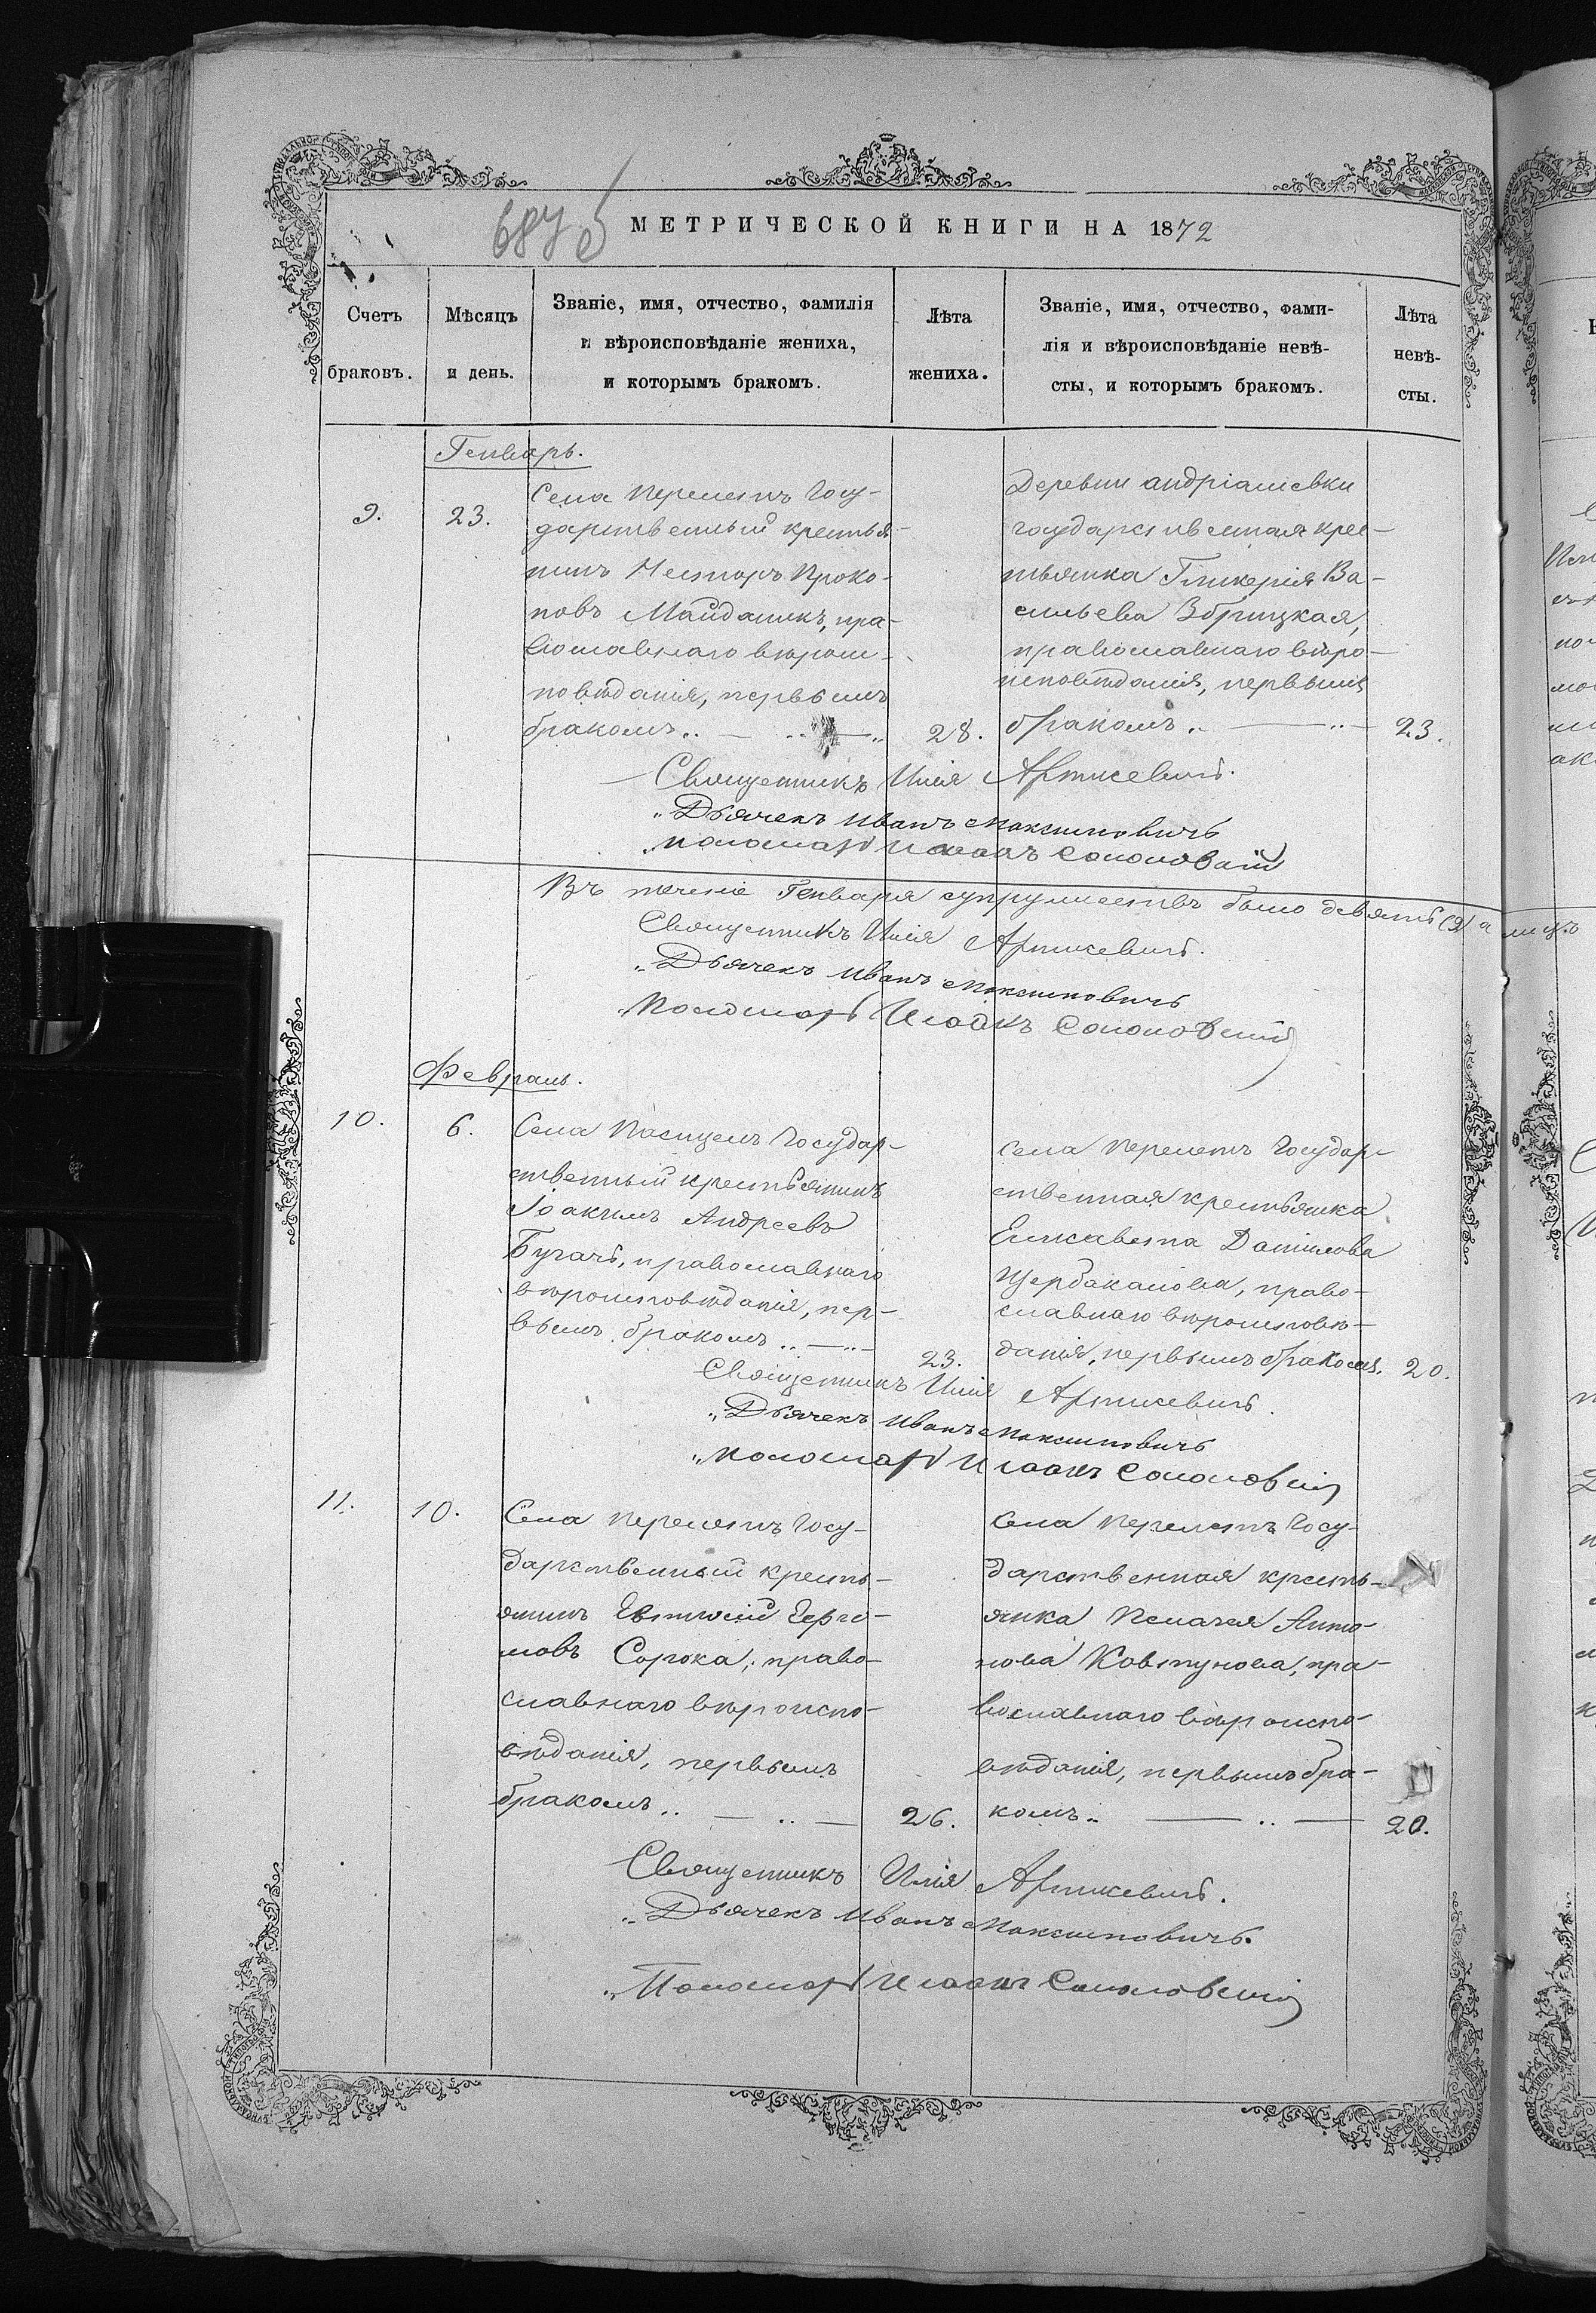 МЕТРИЧЕСКОЙ КНИГИ НА 1872
Счетъ браковъ.
Мѣсяцъ и день.
Званіе, имя, отчество, фамилія
и вѣроисповѣданіе жениха,
и которымъ бракомъ.
Лѣта
жениха.
Званіе, имя, отчество, фами-
лія и вѣроисповѣданіе невѣ-
сты, и которымъ бракомъ.
Лѣта
невѣ-
сты.
Генварь.
9.
23.
Села Перелетъ Госу-
дарственный крестья-
нинъ Несторъ Проко-
повъ Майданикъ, пра-
вославнаго вѣроис-
повѣданія, первымъ
бракомъ
28.
Деревни Андріашевки
государственная крес-
тьянка Гликерія Ва-
сильева Збрицкая,
православнаго вѣро-
исповѣданія, первымъ
бракомъ
23.
Священникъ Илія
Дьячекъ Иванъ Максимовичъ
Пономарь Исаакъ
Въ теченіе Генваря супружествъ было девять (9) а лицъ
Священникъ Илія
Дьячекъ Иванъ Максимовичъ
Пономарь Исаакъ
Февраль.
10.
6.
Села Пасицелъ Государ-
ственный крестьянинъ
Іоакимъ Андреевъ
Бугачъ, православнаго
вѣроисповѣданія, пер-
вымъ бракомъ
23.
Села Перелетъ Государ-
ственная крестьянка
Елисавета Данилова
Щербакалова, право-
славнаго вѣроисповѣ-
данія, первымъ бракомъ.
20.
Священникъ Илія
Дьячекъ Иванъ Максимовичъ
Пономарь Исаакъ
11.
10.
Села Перелетъ Госу-
дарственный кресть-
янинъ Евтихій Гера-
мовъ Сорока, право-
славнаго вѣроиспо-
вѣданія, первымъ
бракомъ
26.
Села Перелетъ Госу-
дарственная кресть-
янка Пелагея Анто-
нова Ковтунова, пра-
вославнаго вѣроиспо-
вѣданія, первымъ бра-
комъ
20.
Священникъ Илія
Дьячекъ Иванъ Максимовичъ.
Пономарь Исаакъ